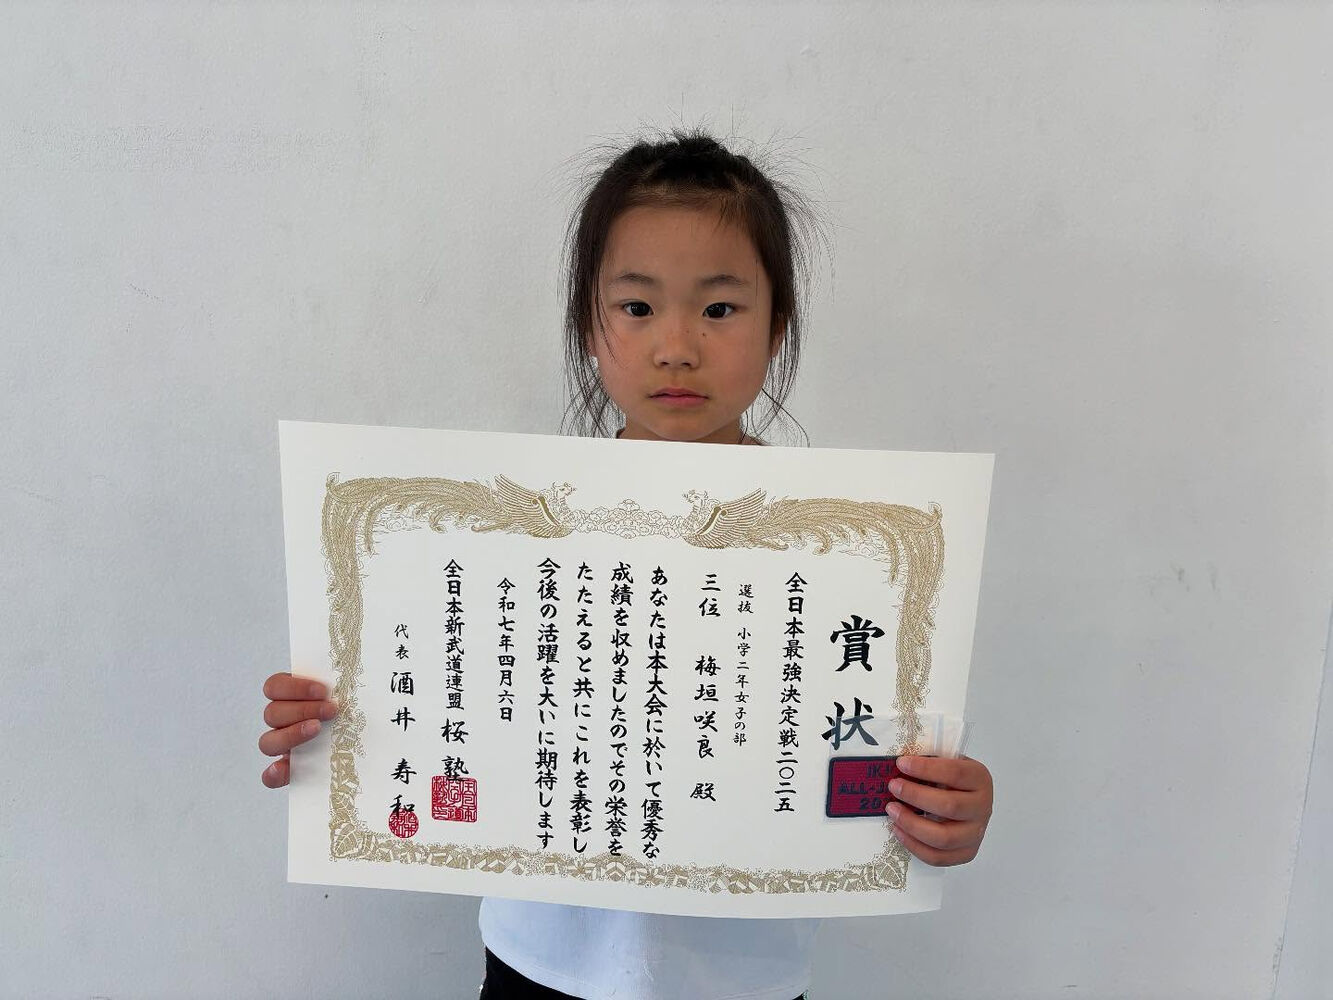 賞状
全日本最強決定戦二〇二五
選抜 小学二年女子の部
三位 梅垣咲良 殿
あなたは本大会に於いて優秀な
成績を収めましたのでその栄誉を
たたえると共にこれを表彰し
今後の活躍を大いに期待します
令和七年四月六日
全日本新武道連盟 桜塾
代表 酒井 寿和
ALL-J
20